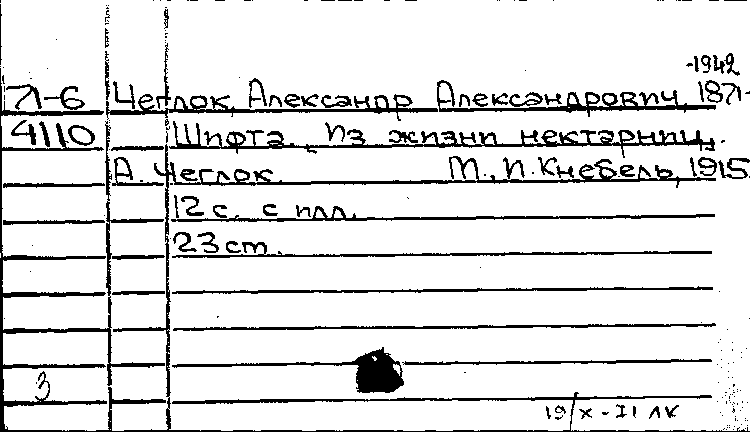 -1942
Л-6 Чеглок, Александр Александрович, 1871-
4110 Шифта. Из жизни нектарниц.
А. Чеглок. М., И. Кнебель, 1915.
12 с. с илл.
23 ст.
3
19/X - 71 ЛК